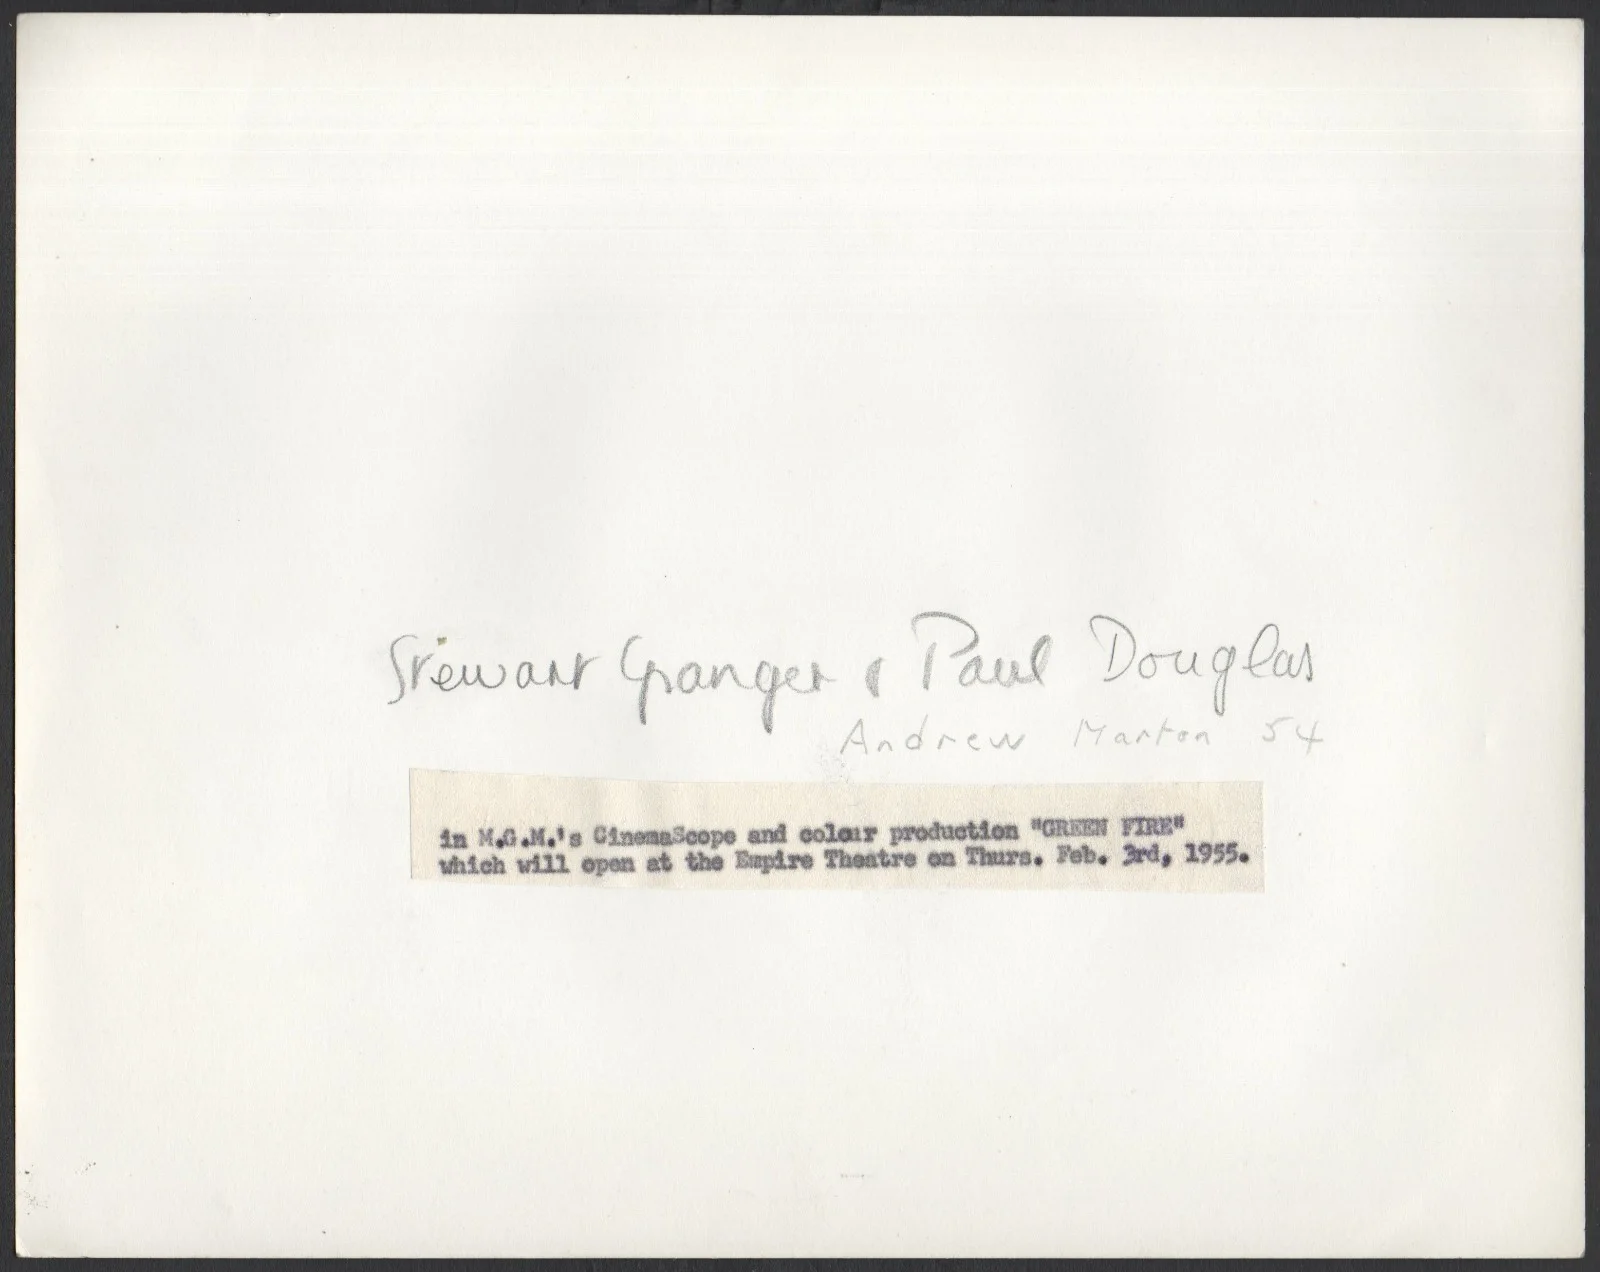 Stewart Granger & Paul Douglas
Andrew Marton 54
in M.G.M.'s CinemaScope and colour production "GREEN FIRE"
which will open at the Empire Theatre on Thurs. Feb. 3rd, 1955.